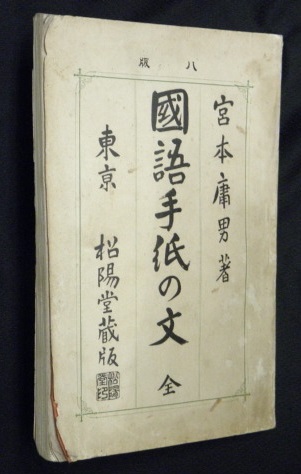 版八
宮本庸男著
國語手紙の文 全
東京 松陽堂蔵版